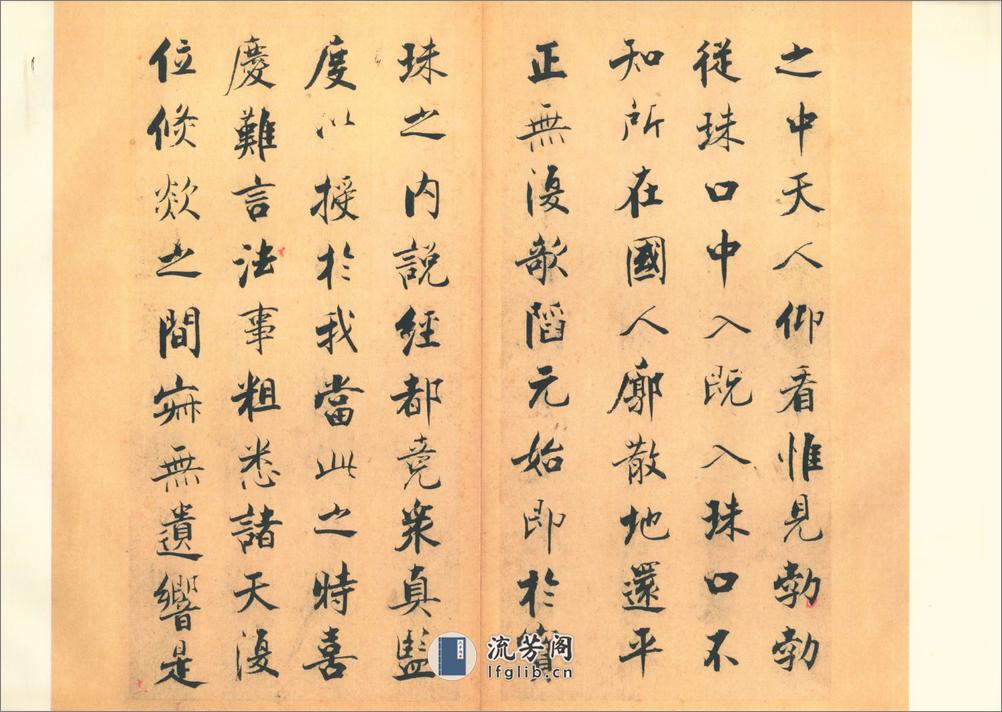 之中天人仰看惟見勃勃
從珠口中入既入珠口不
知所在國人廓散地還平
正無復欹陷元始即於寶
珠之內說經都竟衆真監
度以授於我當此之時喜
慶難言法事粗悉諸天復
位倐欻之間寂無遺響是
流芳阁
lfglib.cn